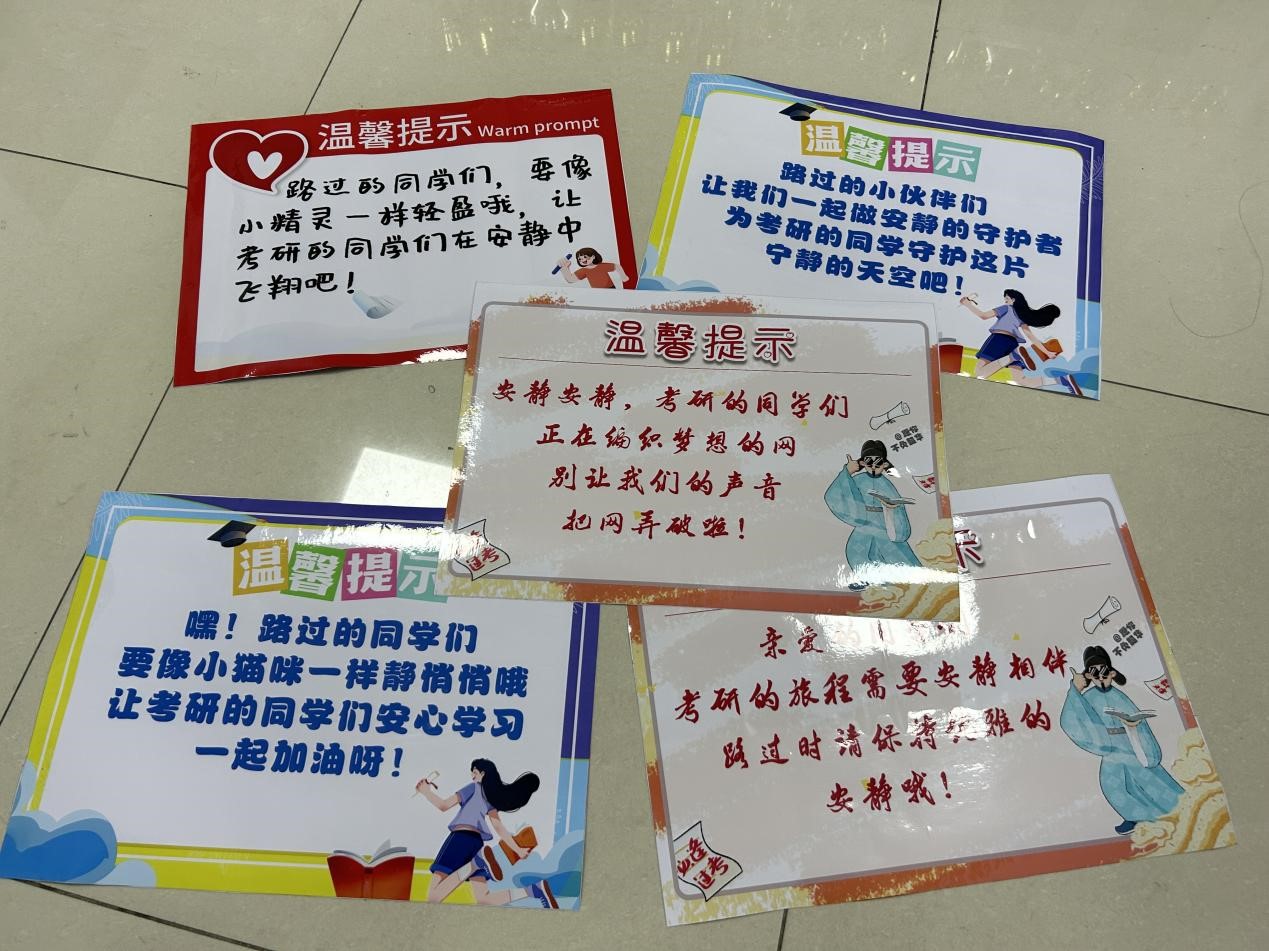 温馨提示 Warm prompt
路过的同学们，要像
小精灵一样轻盈哦，让
考研的同学们在安静中
飞翔吧！
温馨提示
路过的小伙伴们
让我们一起做安静的守护者
为考研的同学守护这片
宁静的天空吧！
温馨提示
安静安静，考研的同学们
正在编织梦想的网
别让我们的声音
把网弄破啦！
@愿你
不负韶华
逢考
温馨提示
嘿！路过的同学们
要像小猫咪一样静悄悄哦
让考研的同学们安心学习
一起加油呀！
示
亲爱
考研的旅程需要安静相伴
路过时请保持优雅的
安静哦！
@愿你
不负韶华
逢考
必过